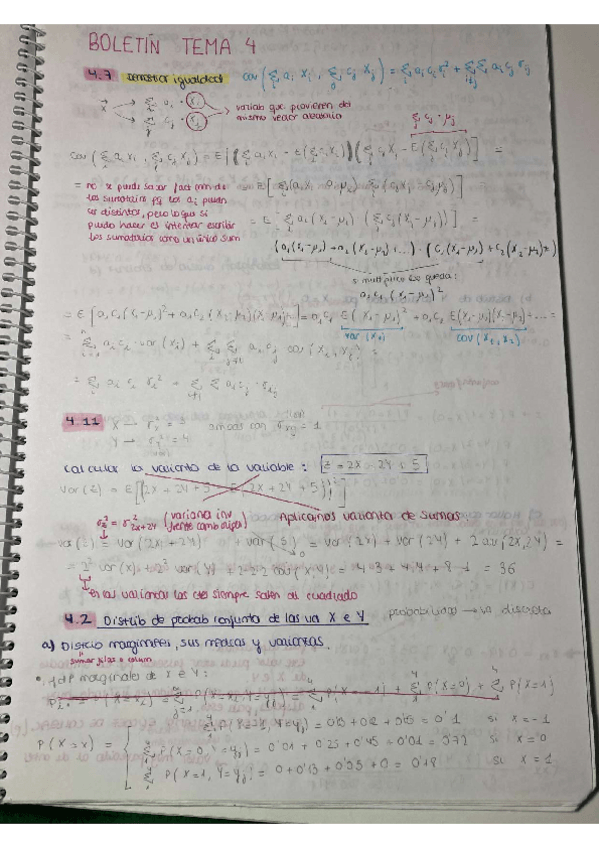 BOLETÍN TEMA 4
4.7 Demostrar igualdad cov(Σ ai Xi, Σ cj Xj) = Σ ai ci σi² + ΣΣ ai cj σij
X → Σ ai · Xi
→ Σ cj · Xj
variab que provienen del
mismo vector aleatorio
Σ cj · μj
cov(Σ ai Xi, Σ cj Xj) = E[(Σ ai Xi - E(Σ ai Xi))(Σ cj Xj - E(Σ cj Xj))] =
= no se puede sacar fact común de
los sumatorios pq los ai pueden
ser distintos, pero lo que sí
puedo hacer es intentar escribir
los sumatorios como un único sum
(a1(X1-μ1) + a2(X2-μ2) + ...) · (c1(X1-μ1) + c2(X2-μ2)
si multiplico me queda:
a1 c1 (X1-μ1)²
= E[a1 c1 (X1-μ1)² + a1 c2 (X1-μ1)(X2-μ2)...] = a1 c1 E(X1-μ1)² + a1 c2 E(X1-μ1)(X2-μ2) + ... =
var(X1) cov(X1, X2)
= Σ ai ci · var(Xi) + ΣΣ ai cj cov(Xi, Xj) =
= Σ ai ci σi² + ΣΣ ai cj · σij
4.11 X →
Y → σy² = 4
ambas con σxy = 1
Calcular la varianza de la variable: Z = 2X + 2Y + 5
Var(Z) = E[(2X + 2Y + 5 - E(2X + 2Y + 5))²]
σz² = σ²2x+2y (varianza inv frente cambio origen) Aplicamos varianza de sumas
var(Z) = var(2X + 2Y) + var(5) = var(2X) + var(2Y) + 2cov(2X, 2Y) =
= 2² var(X) + 2² var(Y) + 2·2·2 cov(X,Y) = 4·3 + 4·4 + 8·1 = 36
En las varianzas las ctes siempre salen al cuadrado
4.2 Distrib de probab conjunta de las va X e Y probabilidades → va discreta
a) Distrib marginales, sus medias y varianzas.
sumar filas o column
marginales de X e Y:
P(X=x) = P(X=-1, Y=yj) = 0'1 si x=-1
P(X=0, Y=yj) = 0'72 si x=0
P(X=1, Y=yj) = 0 + 0'13 + 0'05 + 0 = 0'18 si x=1